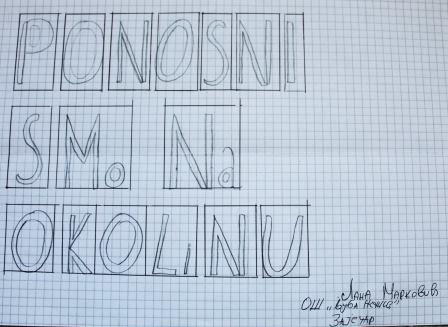 PONOSNI
SMo Na
OKOLiNU
Лана Марковић
ОШ „Љуба Нешић"
Зајечар